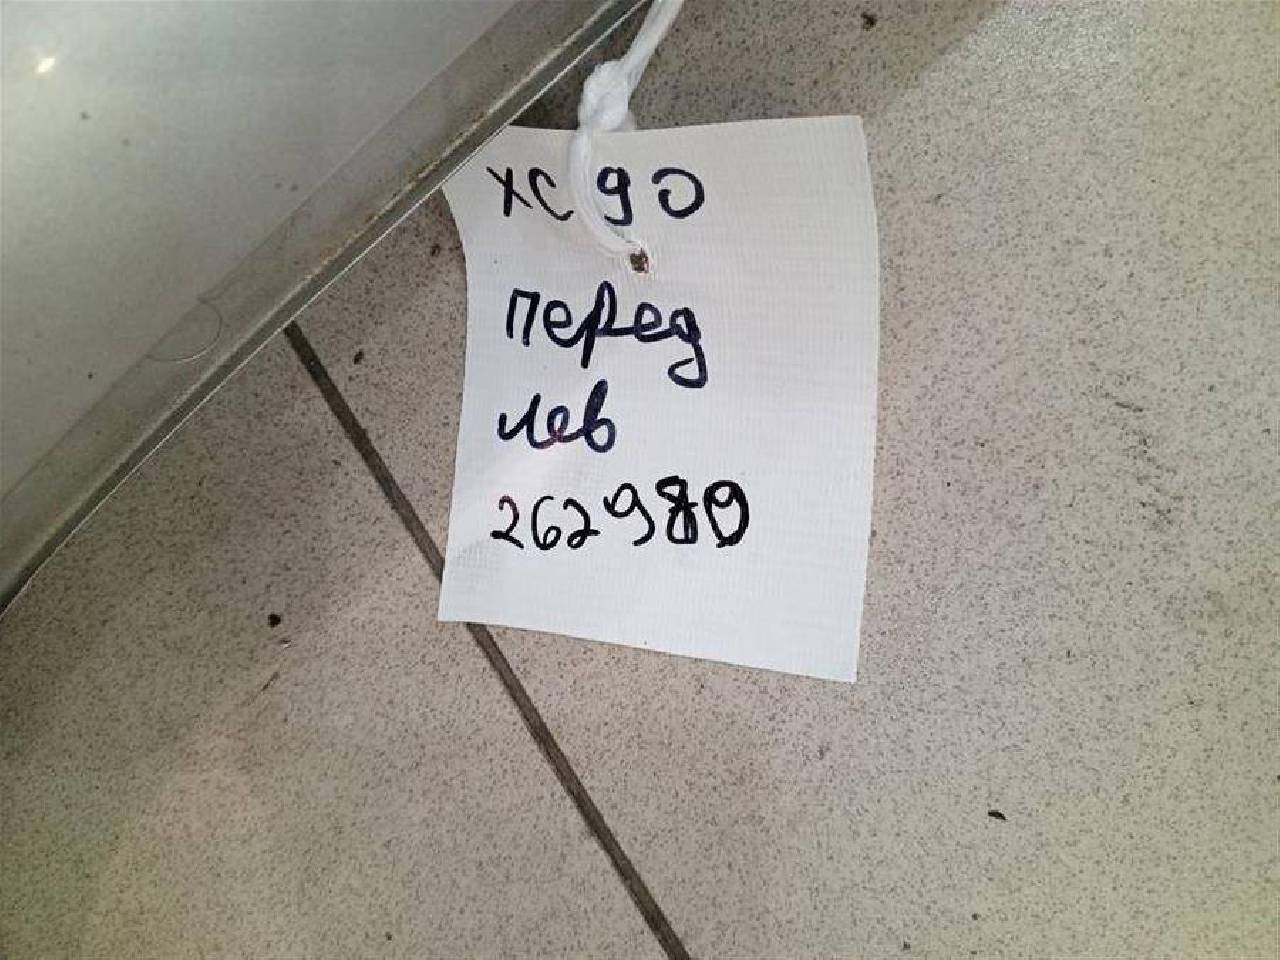 XC 90
перед
лев
262989